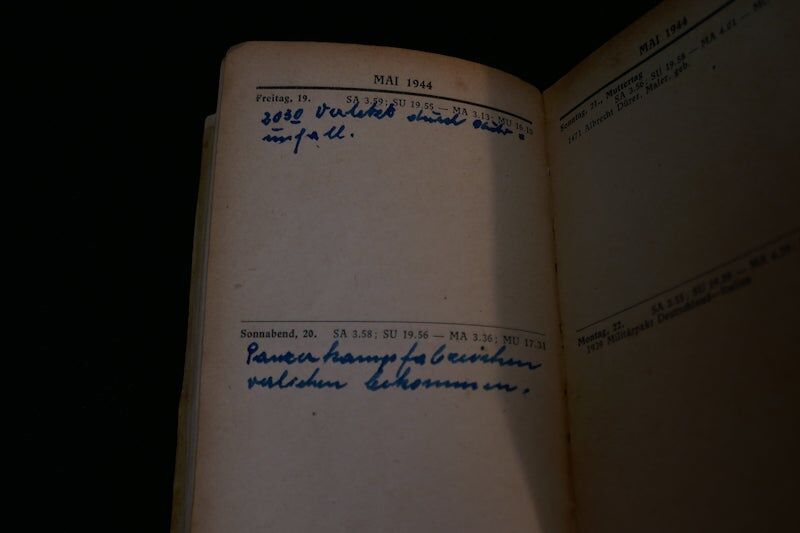 MAI 1944
Freitag, 19. SA 3.59; SU 19.55 — MA 3.13; MU 16.15
2030 Verletzt durch Auto =
unfall.
Sonnabend, 20. SA 3.58; SU 19.56 — MA 3.36; MU 17.31
Panzerkampfabzeichen
verliehen bekommen.
MAI 1944
Sonntag, 21., Muttertag
SA 3.56; SU 19.58 — MA 4.01
1471 Albrecht Dürer, Maler, geb.
Montag, 22.
1939 Militärpakt Deutschland—Italien